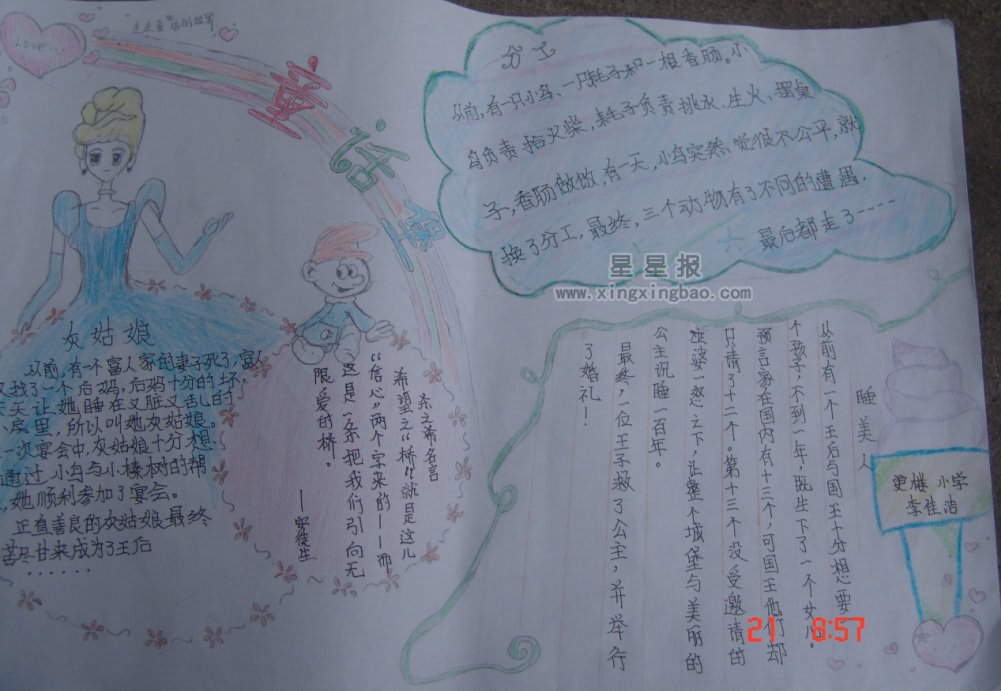 Love
童
话
王
国
分工
从前,有一只小鸟、一只耗子和一根香肠。小
鸟负责拾火柴,耗子负责挑水、生火、摆桌
子,香肠做做,有一天,小鸟突然觉很不公平,就
换了分工,最终,三个动物有了不同的遭遇,
最后都走了----
星星报
www.xingxingbao.com
灰姑娘
从前,有一个富人家的妻子死了,富人
又找了一个后妈,后妈十分的坏,
天天让她睡在又脏又乱的
小房里,所以叫她灰姑娘。
一次宴会中,灰姑娘十分想
通过小鸟与小榛树的帮
,她顺利参加了宴会。
正直善良的灰姑娘最终
苦尽甘来成为了王后
......
名言
希望之“桥”就是这儿
“信心”两个字来的——而
这是一条把我们引向无
限爱的桥。
——安徒生
睡美人
从前有一个王后与国王十分想要一
个孩子,不到一年,既生下了一个女儿。
预言家在国内有十三个,可国王他们却
只请了十二个。第十三个没受邀请的
巫婆一怒之下,让整个城堡与美丽的
公主沉睡一百年。
最终,一位王子救了公主,并举行
了婚礼!
更楼小学
李佳洁
21 8:57